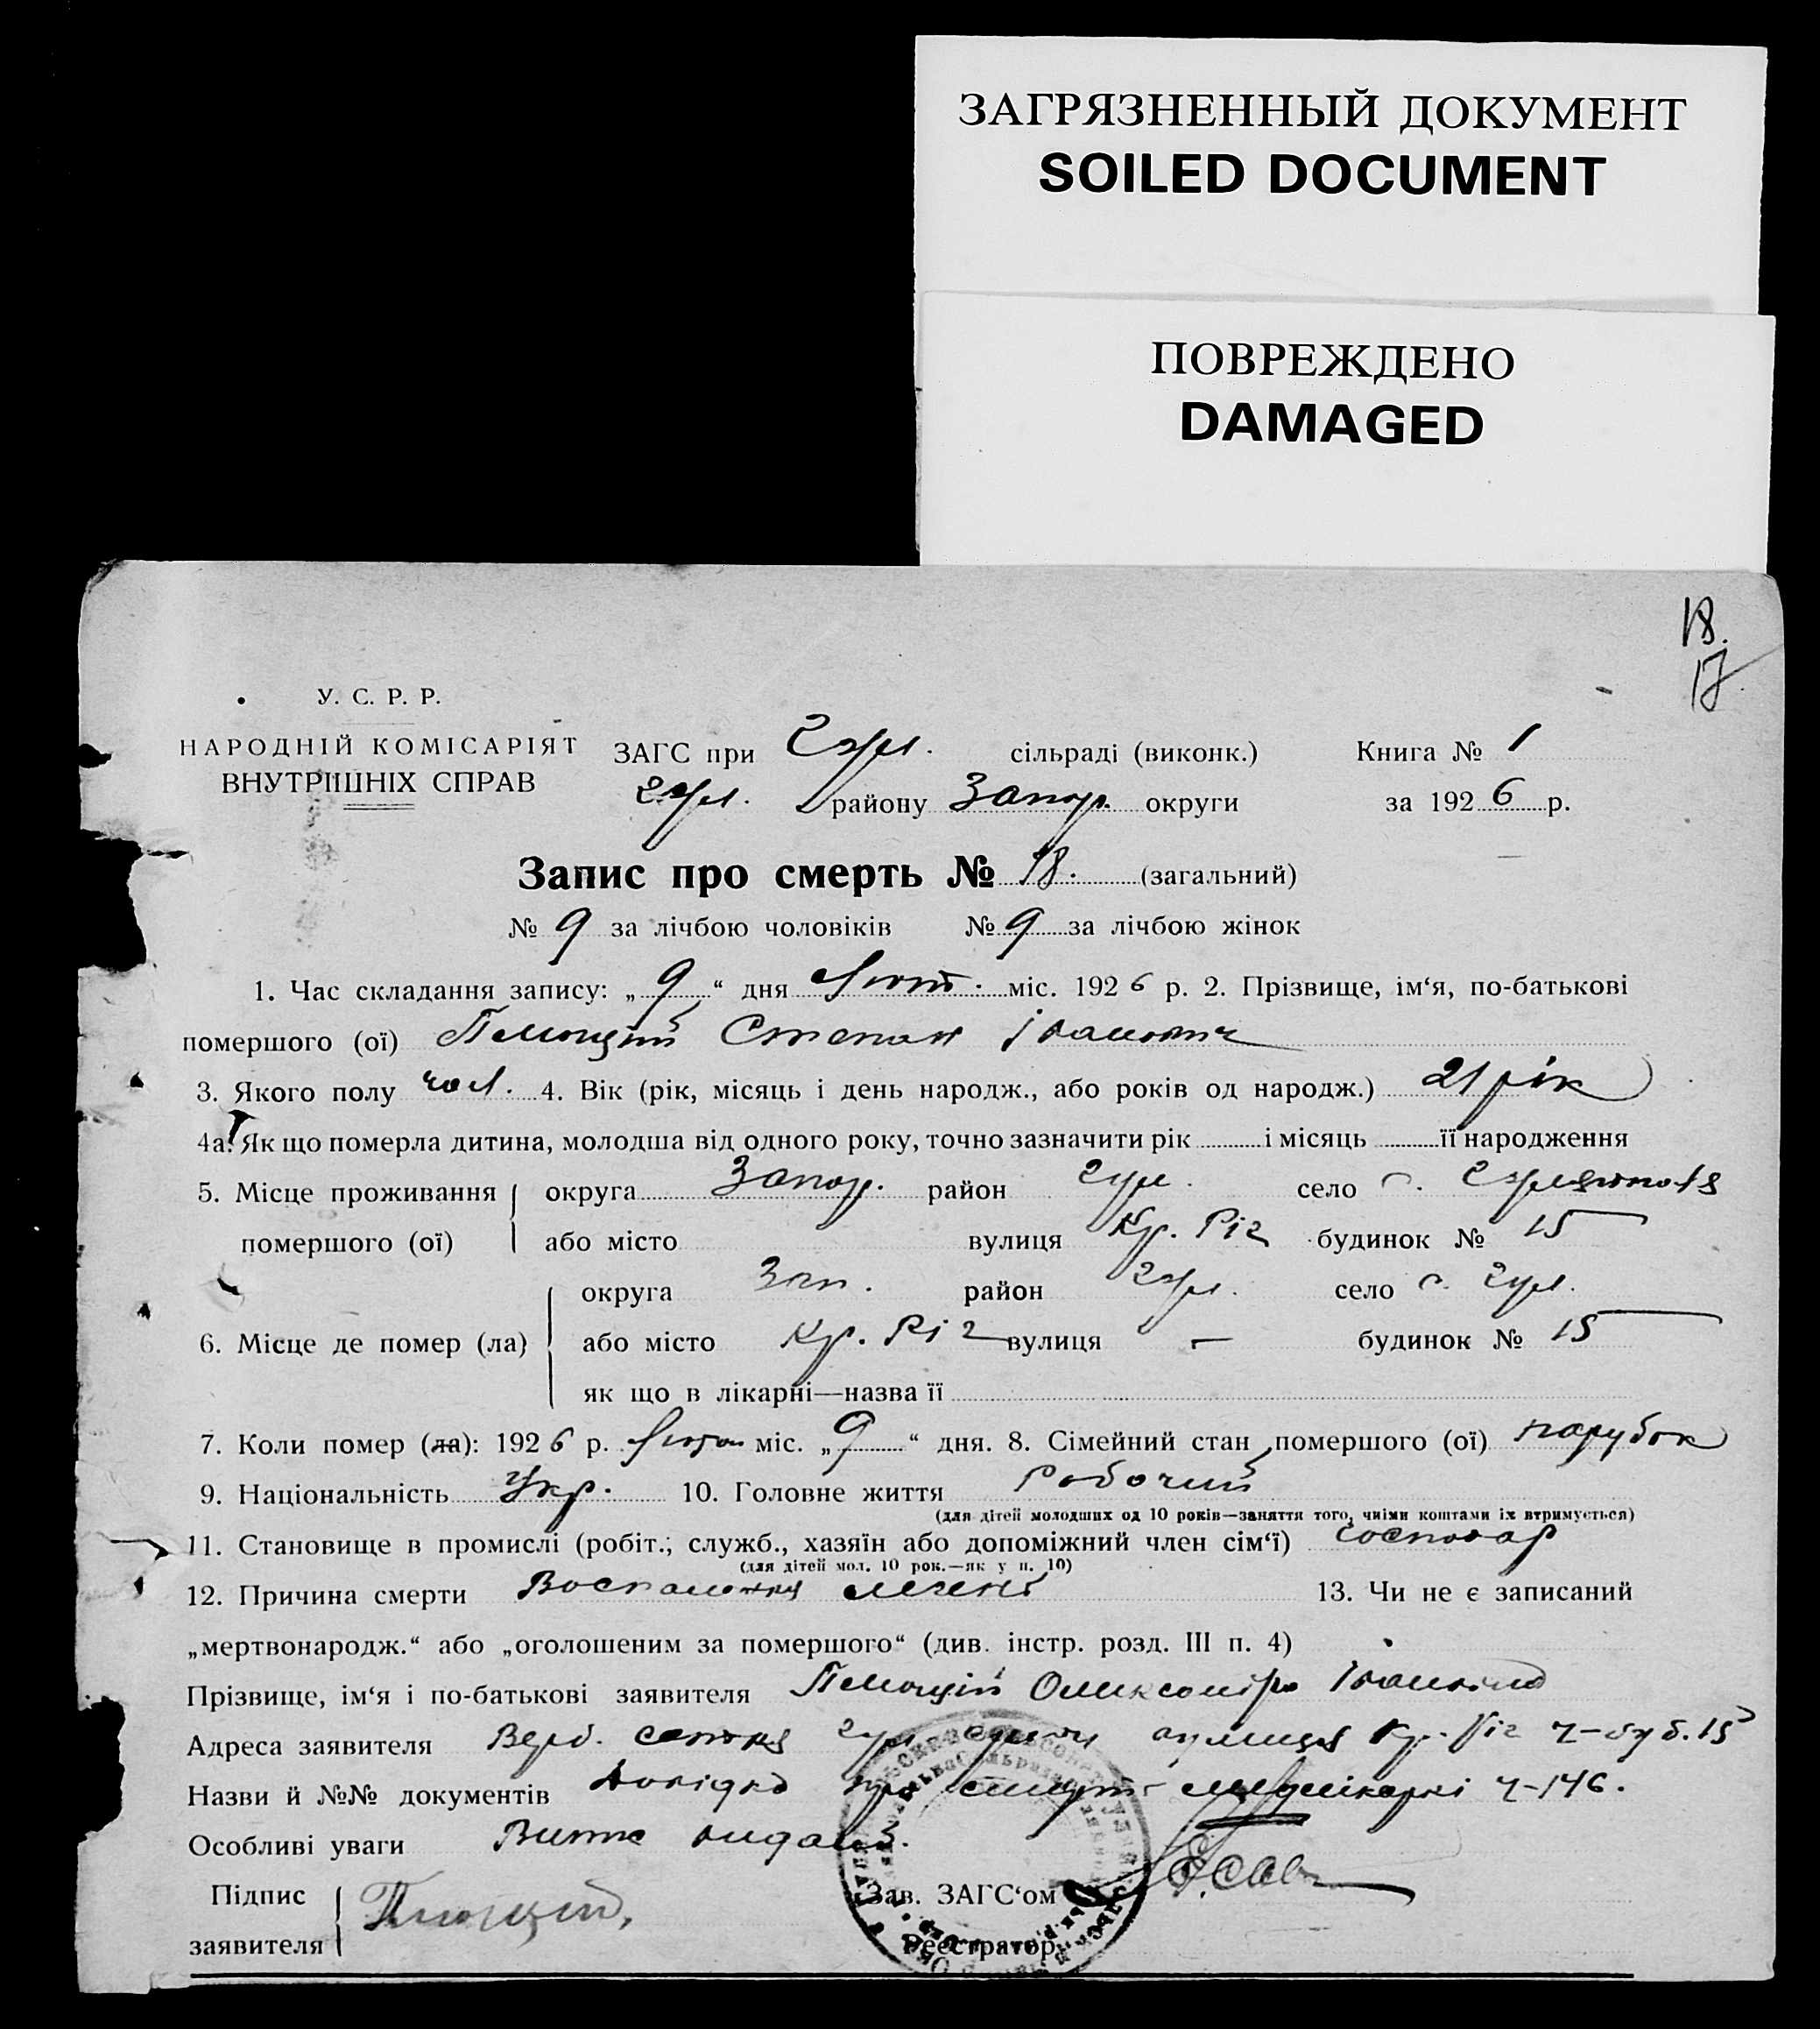 ЗАГРЯЗНЕННЫЙ ДОКУМЕНТ
SOILED DOCUMENT
ПОВРЕЖДЕНО
DAMAGED
18.
17
У. С. Р. Р.
НАРОДНІЙ КОМІСАРІЯТ
ВНУТРІШНІХ СПРАВ
ЗАГС при Гул. сільраді (виконк.) Книга № 1
Гул. району Запор. округи за 1926 р.
Запис про смерть № 18. (загальний)
№ 9 за лічбою чоловіків № 9 за лічбою жінок
1. Час складання запису: „9“ дня Лют. міс. 1926 р. 2. Прізвище, ім‘я, по-батькові
помершого (ої) Степан Іванович
3. Якого полу чол. 4. Вік (рік, місяць і день народж., або років од народж.) 21 рік
4а. Як що померла дитина, молодша від одного року, точно зазначити рік і місяць її народження
5. Місце проживання округа Запор. район Гул. село с.
помершого (ої) або місто вулиця Кр. Ріг будинок № 15
округа Зап. район Гул. село с. Гул.
6. Місце де помер (ла) або місто Кр. Ріг вулиця — будинок № 15
як що в лікарні—назва її
7. Коли помер (ла): 1926 р. міс. „9“ дня. 8. Сімейний стан помершого (ої) парубок
9. Національність Укр. 10. Головне життя Робочий
(для дітей молодших од 10 років—заняття того, чиїми коштами їх втримується)
11. Становище в промислі (робіт.; служб., хазяїн або допоміжний член сім‘ї) господар
(для дітей мол. 10 рок.—як у п. 10)
12. Причина смерти 13. Чи не є записаний
„мертвонародж.“ або „оголошеним за помершого“ (див. інстр. розд. III п. 4)
Прізвище, ім‘я і по-батькові заявителя
Адреса заявителя Верб. сотня вулиця Кр. Ріг ч-буд. 15
Назви й №№ документів Довідка про смерть ч-146.
Особливі уваги
Підпис
заявителя
Зав. ЗАГС‘ом
Реєстратор